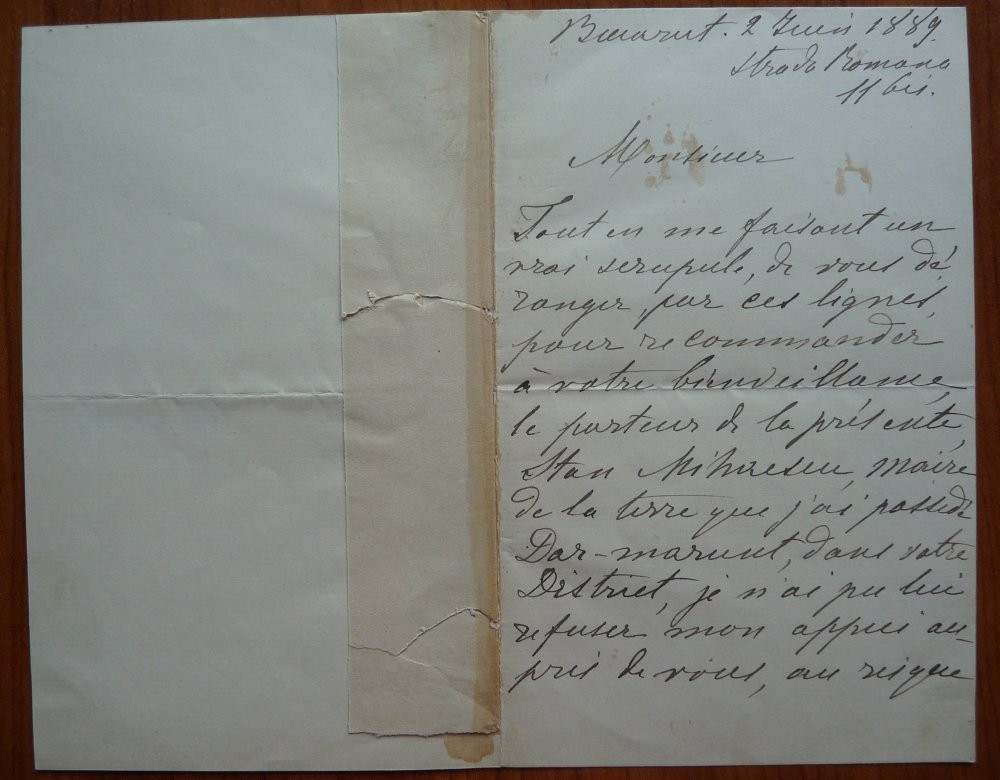 Bucarest. 2 Juin 1889.
Strada Romana
11 bis.
Monsieur
Tout en me faisant un
vrai scrupule, de vous dé-
ranger, par ces lignes,
pour recommander
à votre bienveillance,
le porteur de la présente,
Stan Mihaescu, maire
de la terre que j'ai possédé
Dar-marunt, dans votre
District, je n'ai pu lui
refuser mon appui au-
près de vous, au risque